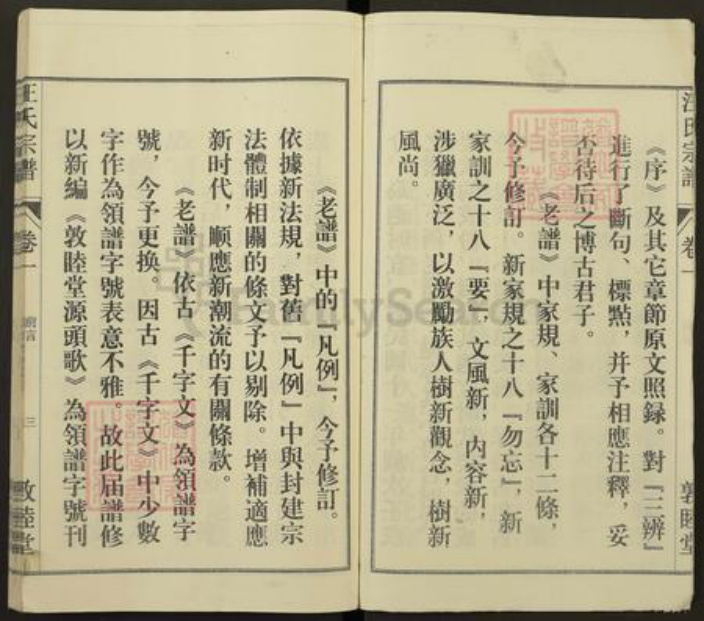 汪氏宗譜
卷一
敦睦堂
《序》及其它章節原文照録。對『三辨』
進行了斷句、標點，并予相應注釋，妥
否待后之博古君子。
《老譜》中家規、家訓各十二條，
今予修訂。新家規之十八『勿忘』，新
家訓之十八『要』，文風新，内容新，
涉獵廣泛，以激勵族人樹新觀念，樹新
風尚。
《老譜》中的『凡例』，今予修訂。
依據新法規，對舊『凡例』中與封建宗
法體制相關的條文予以剔除。增補適應
新時代，順應新潮流的有關條款。
《老譜》依古《千字文》為領譜字
號，今予更换。因古《千字文》中少數
字作為領譜字號表意不雅。故此届譜修
以新編《敦睦堂源頭歌》為領譜字號刊
汪氏宗譜
卷一
三
敦睦堂
FamilySearch